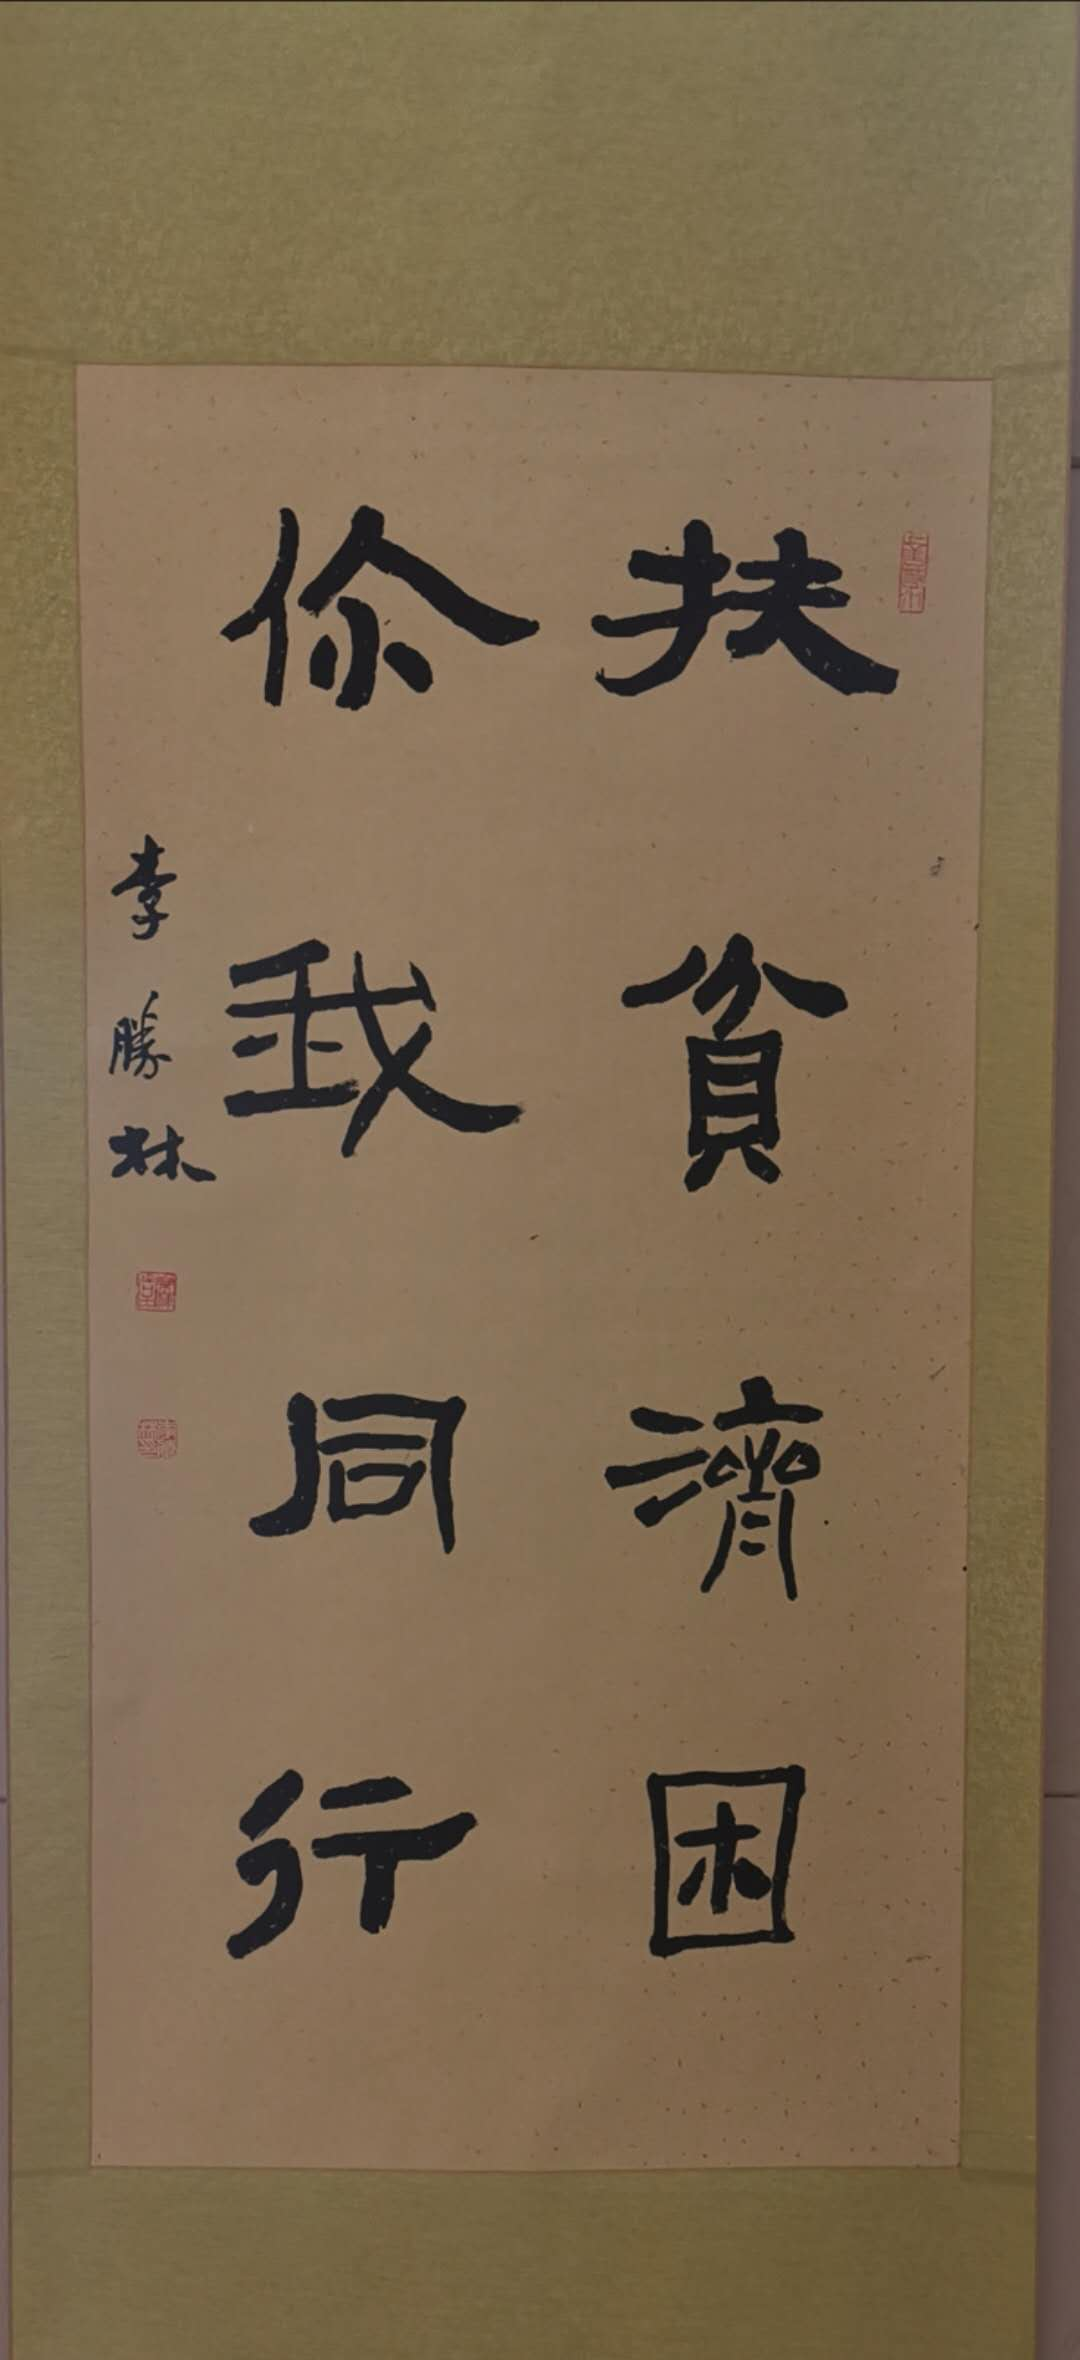 扶貧濟困
你我同行
李勝林